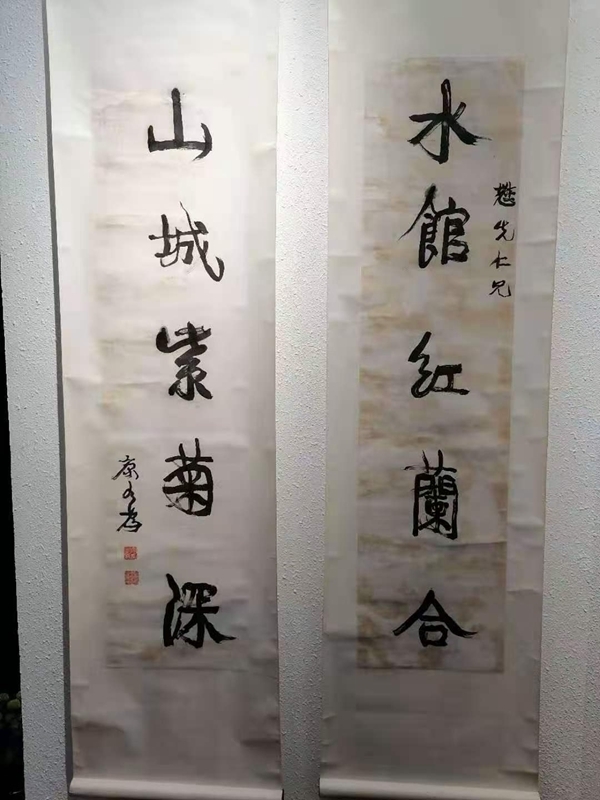 水館紅蘭合
懋先仁兄
山城紫菊深
康有為